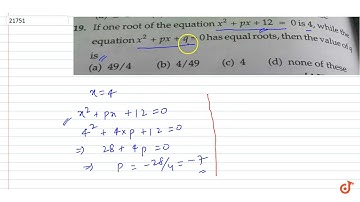 21751
19. If one root of the equation x² + px + 12 = 0 is 4, while the
equation x² + px + q = 0 has equal roots, then the value of q
is
(a) 49/4 (b) 4/49 (c) 4 (d) none of these
x = 4
x² + px + 12 = 0
4² + 4xp + 12 = 0
⇒ 28 + 4p = 0
⇒ p = -28/4 = -7
doubtnut